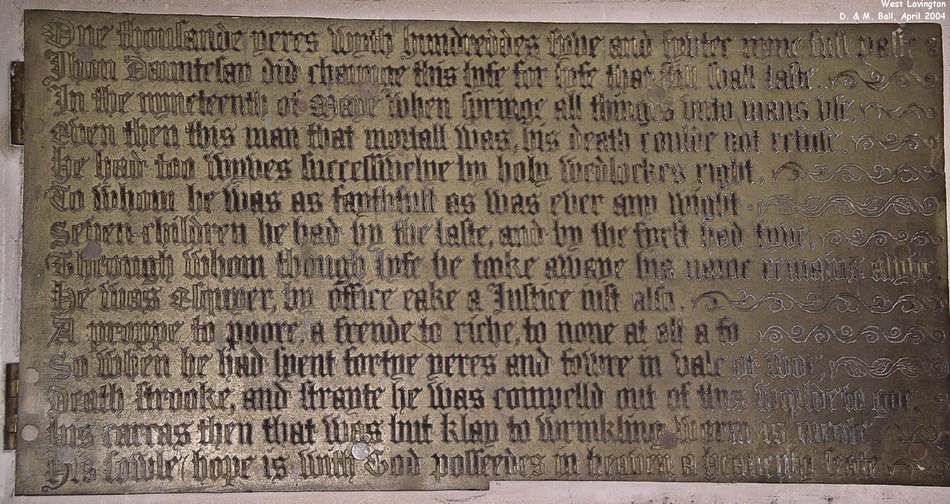 West Lavington
D. & M. Ball, April 2004
One thousande yeres wyth hundreddes fyve and fyftee nyne full paste
Ihon Dauntesay did chaunge this lyfe for lyfe that still shall laste
In the nyneteenth of Maye when springe all thinges unto mans use
Even then this man that mortall was, his death coulde not refuse
He had too wyves successivelye by holy wedlockes right
To whom he was as faythfull as was ever any wight
Seven children he had by the laste, and by the fyrst had
Through whom though lyfe be tooke awaye his name remains alyve
He was Esquyer, by office eake a Justice iust also
A proppe to poore, a frende to riche, to none at all a fo
So when he had spent fortye yeres and fowre in vale of woe
Death strooke, and strayte he was compelld out of this worlde to goe
His carcas then that was but klay to wrinkling
His sowle (hope is with God possesdes in heaven a heavenly seate